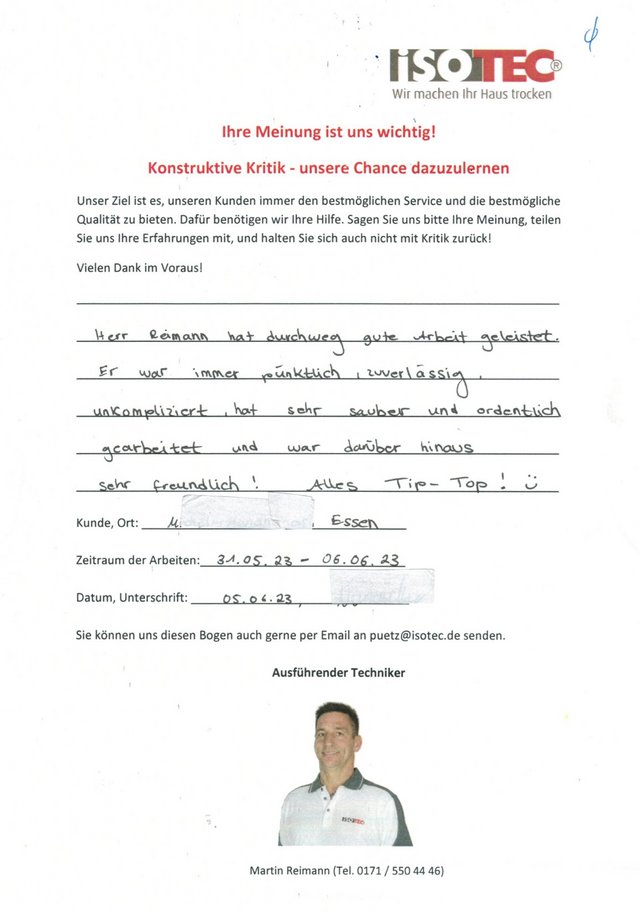 ISOTEC®
Wir machen Ihr Haus trocken
Ihre Meinung ist uns wichtig!
Konstruktive Kritik - unsere Chance dazuzulernen
Unser Ziel ist es, unseren Kunden immer den bestmöglichen Service und die bestmögliche
Qualität zu bieten. Dafür benötigen wir Ihre Hilfe. Sagen Sie uns bitte Ihre Meinung, teilen
Sie uns Ihre Erfahrungen mit, und halten Sie sich auch nicht mit Kritik zurück!
Vielen Dank im Voraus!
Herr Reimann hat durchweg gute Arbeit geleistet.
Er war immer pünktlich, zuverlässig,
unkompliziert, hat sehr sauber und ordentlich
gearbeitet und war darüber hinaus
sehr freundlich! Alles Tip-Top! ☺
Kunde, Ort: M. , Essen
Zeitraum der Arbeiten: 31.05.23 - 06.06.23
Datum, Unterschrift: 05.06.23,
Sie können uns diesen Bogen auch gerne per Email an puetz@isotec.de senden.
Ausführender Techniker
ISOTEC
Martin Reimann (Tel. 0171 / 550 44 46)